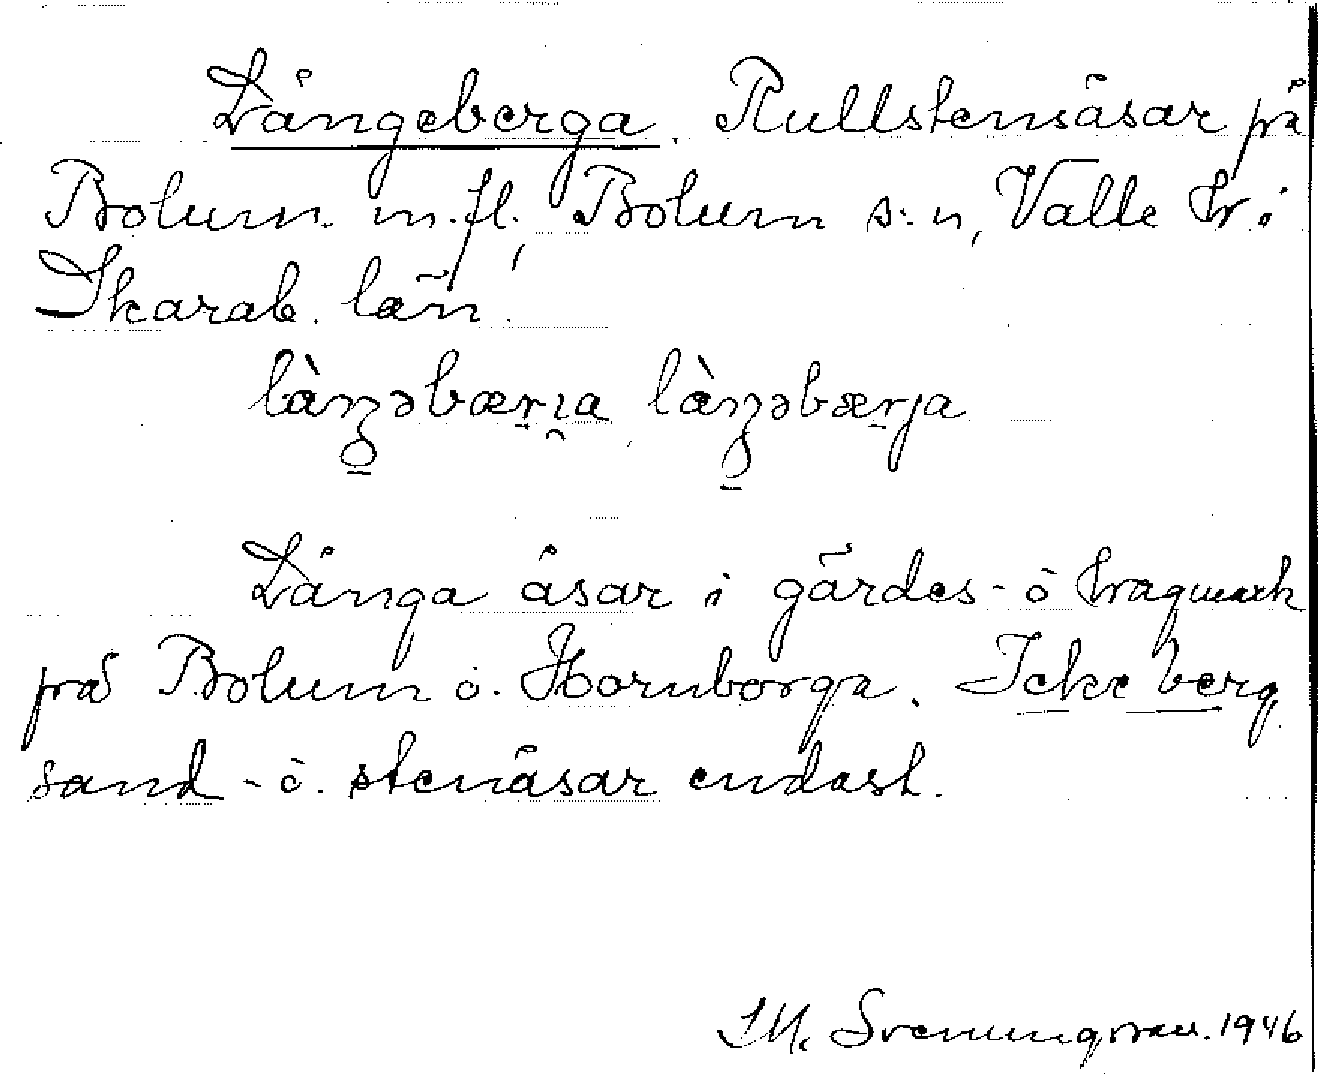 Långeberga. Rullstensåsar på
Bolum m. fl., Bolum s:n, Valle hr. i
Skarab. län.
làŋ̱əbæṟi̯a làŋ̱əbæṟja
Långa åsar i gärdes- o hagmark
på Bolum o. Hornborga. Icke berg
sand- o. stenåsar endast.